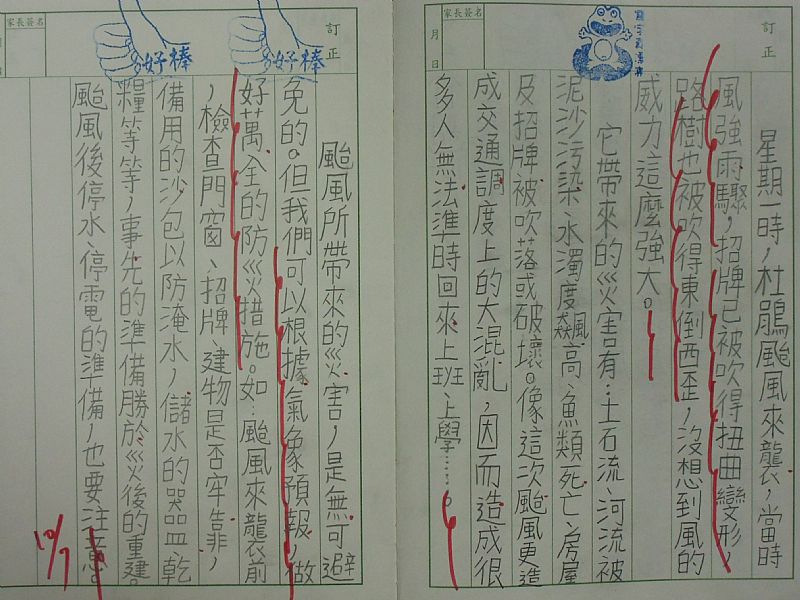 訂正
家長簽名
月 日
星期一時，杜鵑颱風來襲，當時
風強雨驟，招牌已被吹得扭曲變形，
路樹也被吹得東倒西歪，沒想到風的
威力這麼強大。
它帶來的災害有：土石流、河流被
泥沙污染、水濁度飆高、魚類死亡、房屋
及招牌被吹落或破壞。像這次颱風更造
成交通調度上的大混亂，因而造成很
多人無法準時回來上班、上學……。
訂正
家長簽名
月 日
好棒
好棒
颱風所帶來的災害，是無可避
免的。但我們可以根據氣象預報，做
好萬全的防災措施。如：颱風來襲前
，檢查門窗、招牌、建物是否牢靠，
備用的沙包以防淹水，儲水的器皿、乾
糧等等，事先的準備勝於災後的重建。
颱風後停水、停電的準備，也要注意。
10/7